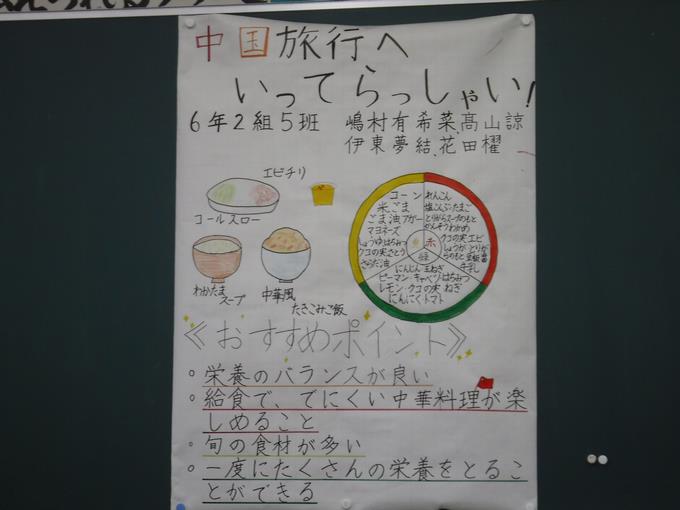 中国旅行へ
いってらっしゃい!
6年2組5班 嶋村有希菜、髙山諒
伊東夢結、花田櫂
エビチリ
コールスロー
わかたま
スープ
中華風
たきこみご飯
コーン
米ごま
ごま油アガー
マヨネーズ
しょうゆはちみつ
クコの実さとう
さらだ油
れんこん
塩こんぶたまご
とりがらスープのもと
かんそうわかめ
クコの実エビ
牛乳
赤
緑
にんじん玉ねぎ
ピーマン・キャベツ・はちみつ
レモン・クコの実ねぎ
にんにくトマト
≪おすすめポイント≫
○栄養のバランスが良い
○給食で、でにくい中華料理が楽
しめること
○旬の食材が多い
○一度にたくさんの栄養をとるこ
とができる